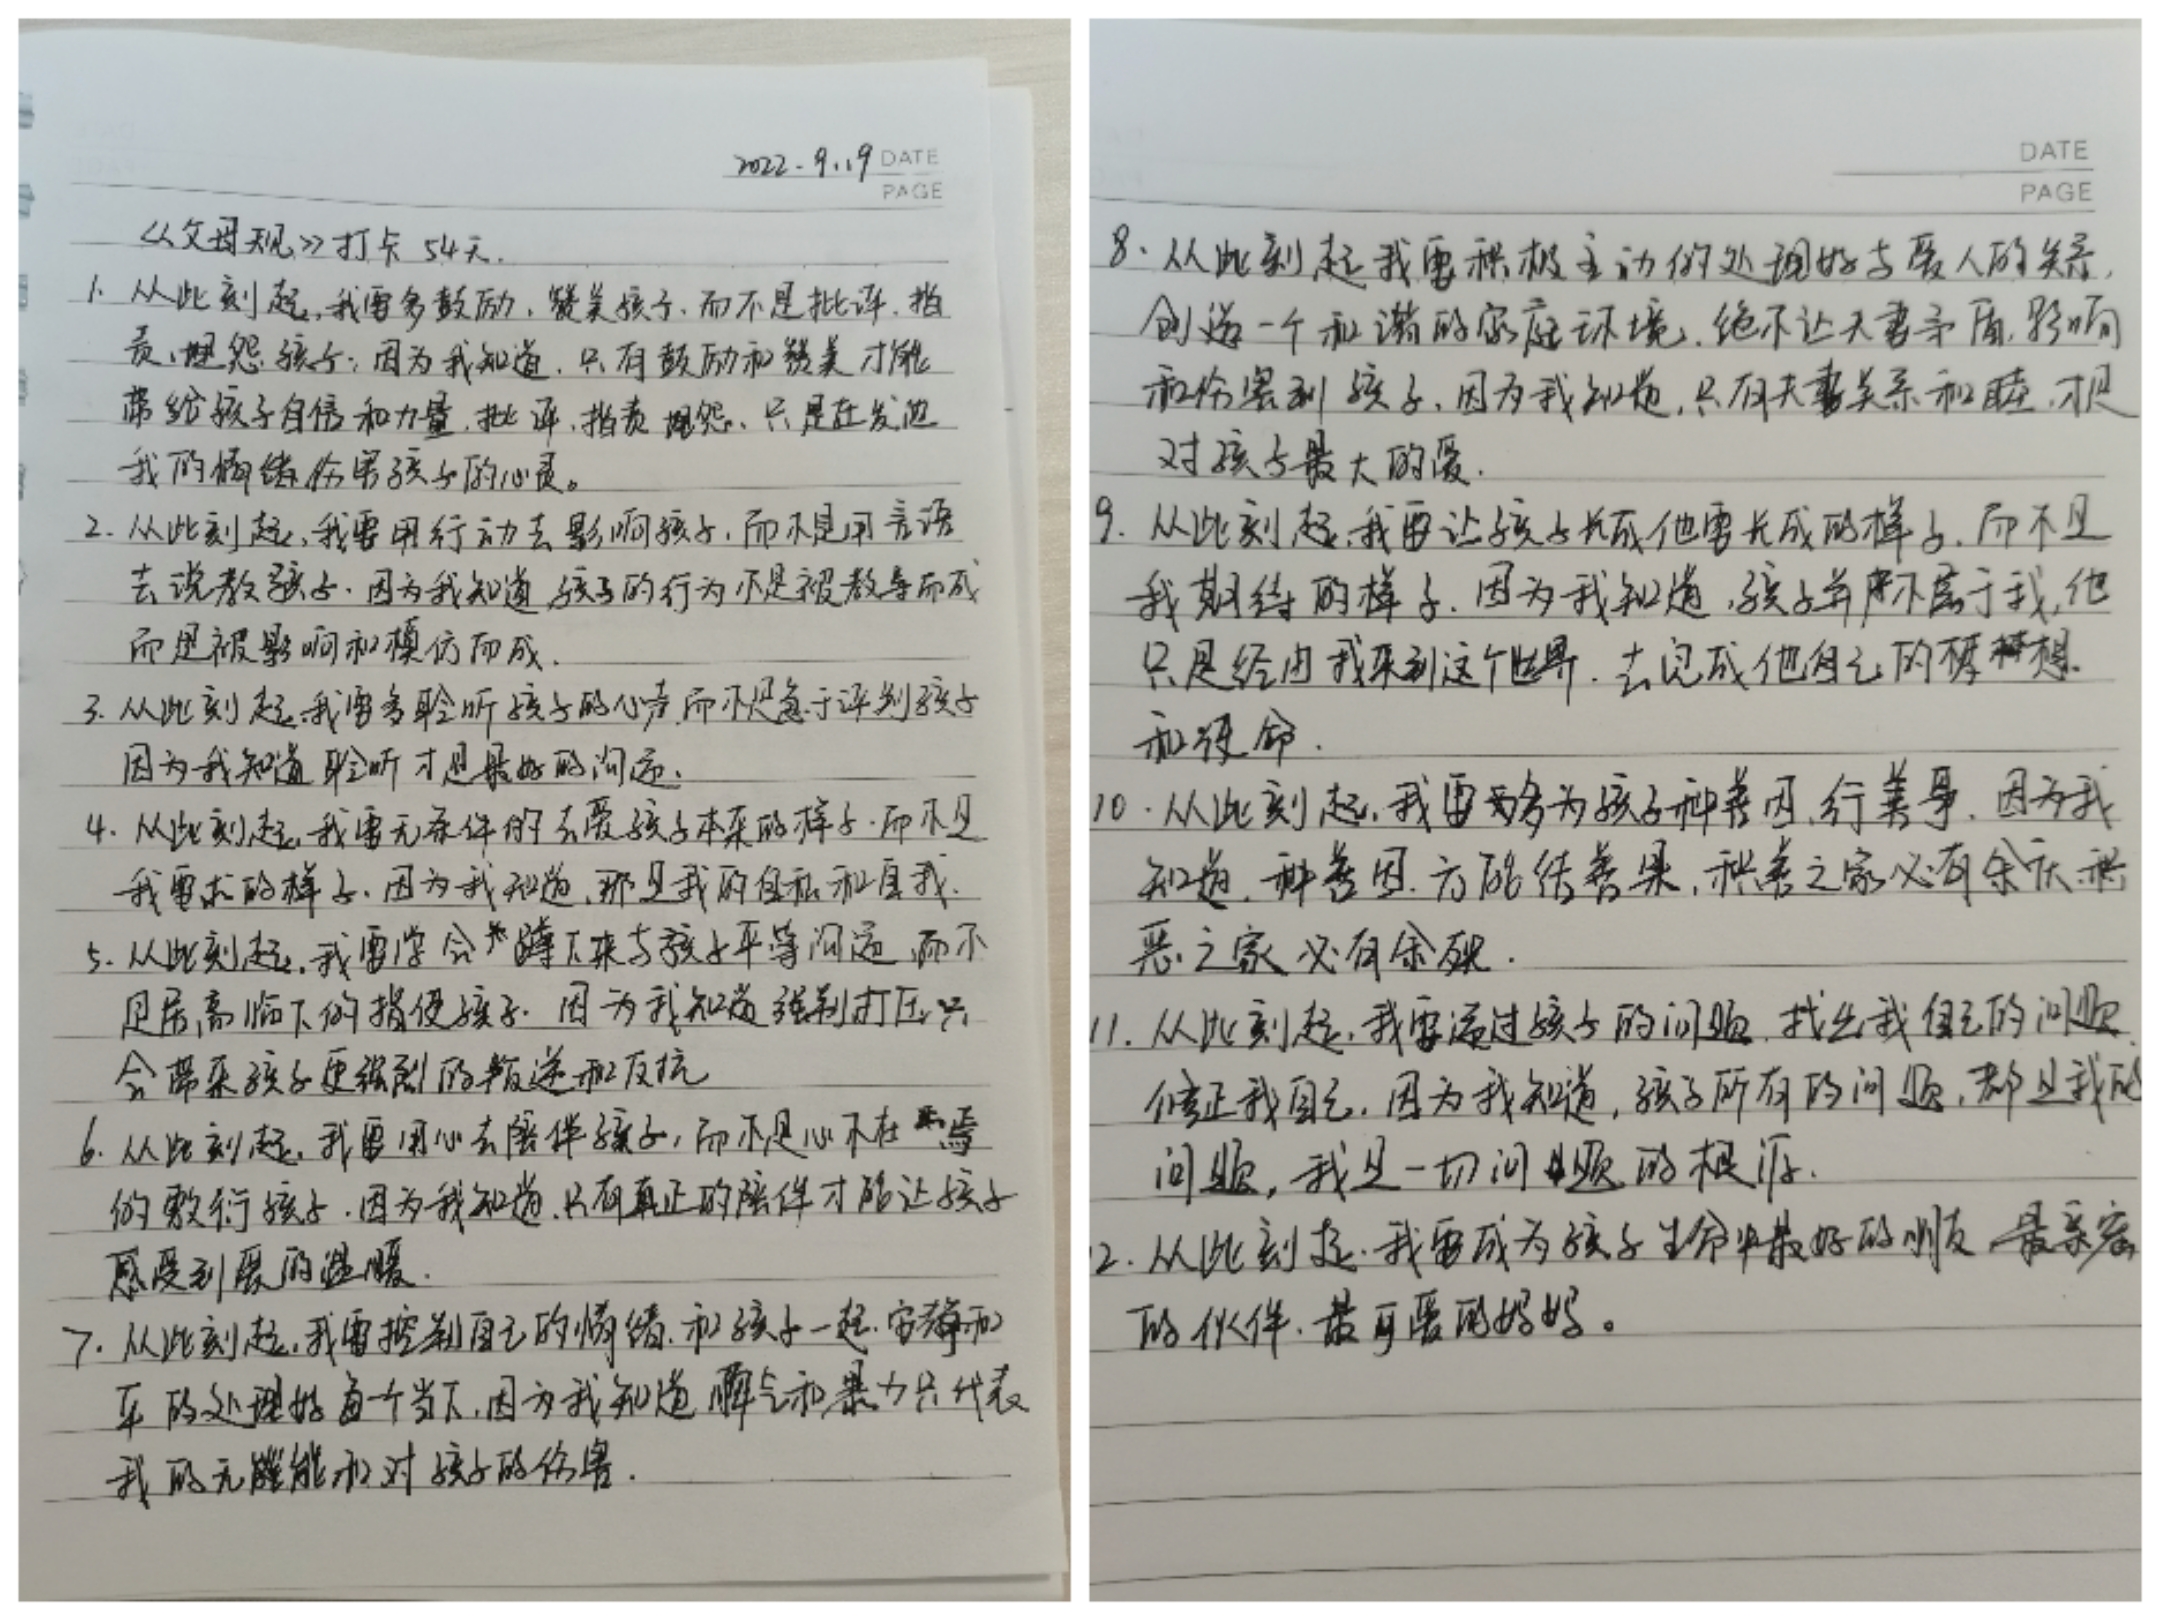 2022.9.19 DATE
PAGE
《父母规》打卡54天.
1. 从此刻起,我要多鼓励、赞美孩子,而不是批评、指
责、埋怨孩子;因为我知道,只有鼓励和赞美才能
带给孩子自信和力量,批评、指责埋怨、只是在发泄
我的情绪,伤害孩子的心灵。
2. 从此刻起,我要用行动去影响孩子,而不是用言语
去说教孩子.因为我知道孩子的行为不是被教导而成
而是被影响和模仿而成.
3. 从此刻起,我要多聆听孩子的心声,而不是急于评判孩子
因为我知道聆听才是最好的沟通.
4. 从此刻起,我要无条件的去爱孩子本来的样子.而不是
我要求的样子.因为我知道,那是我的自私和自我.
5. 从此刻起,我要学会蹲下来与孩子平等沟通,而不
是居高临下的指使孩子.因为我知道强制打压只
会带来孩子更强烈的叛逆和反抗
6. 从此刻起,我要用心去陪伴孩子,而不是心不在焉
的敷衍孩子.因为我知道.只有真正的陪伴才能让孩子
感受到爱的温暖.
7. 从此刻起,我要控制自己的情绪.和孩子一起.安静和
平的处理好每个当下,因为我知道脾气和暴力只代表
我的无能和对孩子的伤害.
DATE
PAGE
8. 从此刻起我要积极主动的处理好与爱人的关系,
创造一个和谐的家庭环境,绝不让夫妻矛盾,影响
和伤害到孩子,因为我知道,只有夫妻关系和睦,才是
对孩子最大的爱.
9. 从此刻起,我要让孩子长成他要长成的样子.而不是
我期待的样子.因为我知道,孩子并不属于我,他
只是经由我来到这个世界.去完成他自己的梦想
和使命.
10. 从此刻起,我要多为孩子种善因,行善事.因为我
知道,种善因.方能结善果,积善之家必有余庆积
恶之家必有余殃.
11. 从此刻起,我要通过孩子的问题,找出我自己的问题
修正我自己,因为我知道,孩子所有的问题,都是我的
问题,我是一切问题的根源.
12. 从此刻起.我要成为孩子生命中最好的朋友 最亲密
的伙伴.最可爱的妈妈。